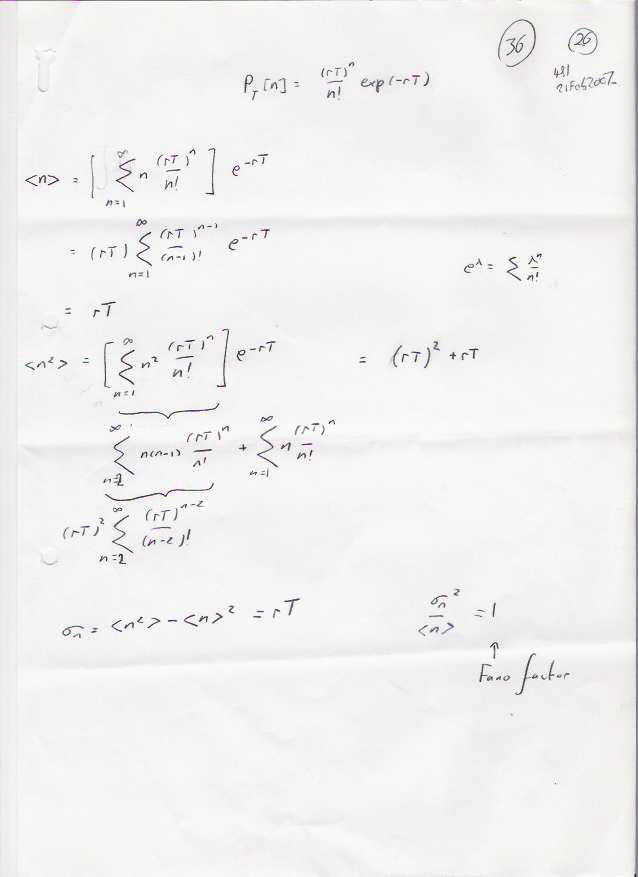 36 26
21Feb2007
P_T[n] = (rT)^n / n! exp(-rT)
<n> = [ ∑_{n=1}^{∞} n (rT)^n / n! ] e^{-rT}
= (rT) ∑_{n=1}^{∞} (rT)^{n-1} / (n-1)! e^{-rT}
e^λ = ∑ λ^n / n!
= rT
<n²> = [ ∑_{n=1}^{∞} n² (rT)^n / n! ] e^{-rT} = (rT)² + rT
∑_{n=2}^{∞} n(n-1) (rT)^n / n! + ∑_{n=1}^{∞} n (rT)^n / n!
(rT)² ∑_{n=2}^{∞} (rT)^{n-2} / (n-2)!
σ_n = <n²> - <n>² = rT
σ_n² / <n> = 1
↑
Fano factor